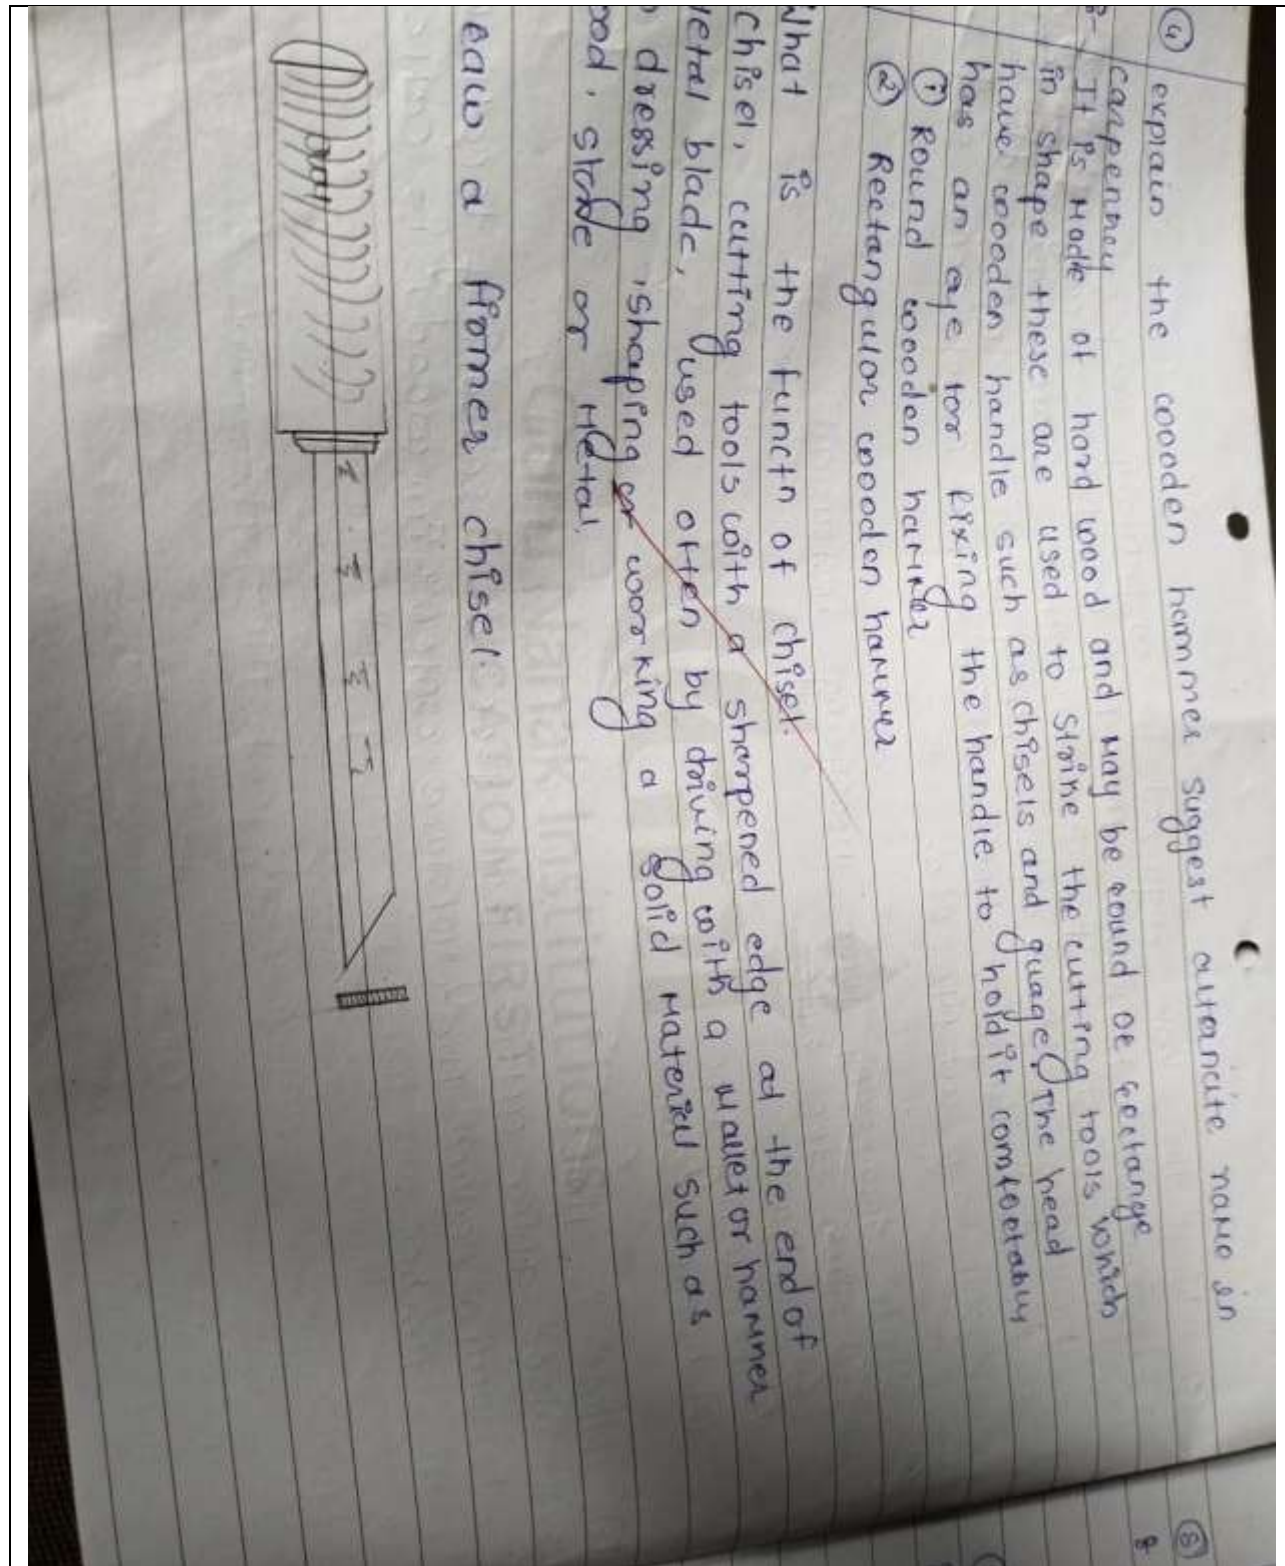 ④ explain the wooden hammer suggest altarnate name in
carpenrey
It is Made of hard wood and May be round or rectange
in shape these are used to strike the cutting tools which
have wooden handle such as chisels and guage. The head
has an eye for Fixing the handle to hold it comfortably
① Round wooden hammer
② Rectangular wooden hammer
What is the functn of chisel.
chisel, cutting tools with a sharpened edge at the end of
etal blade, used often by driving with a Mallet or hammer
dressing, shaping or working a solid Material such as
ood, stone or Metal.
raw a firmer chisel.
⑤